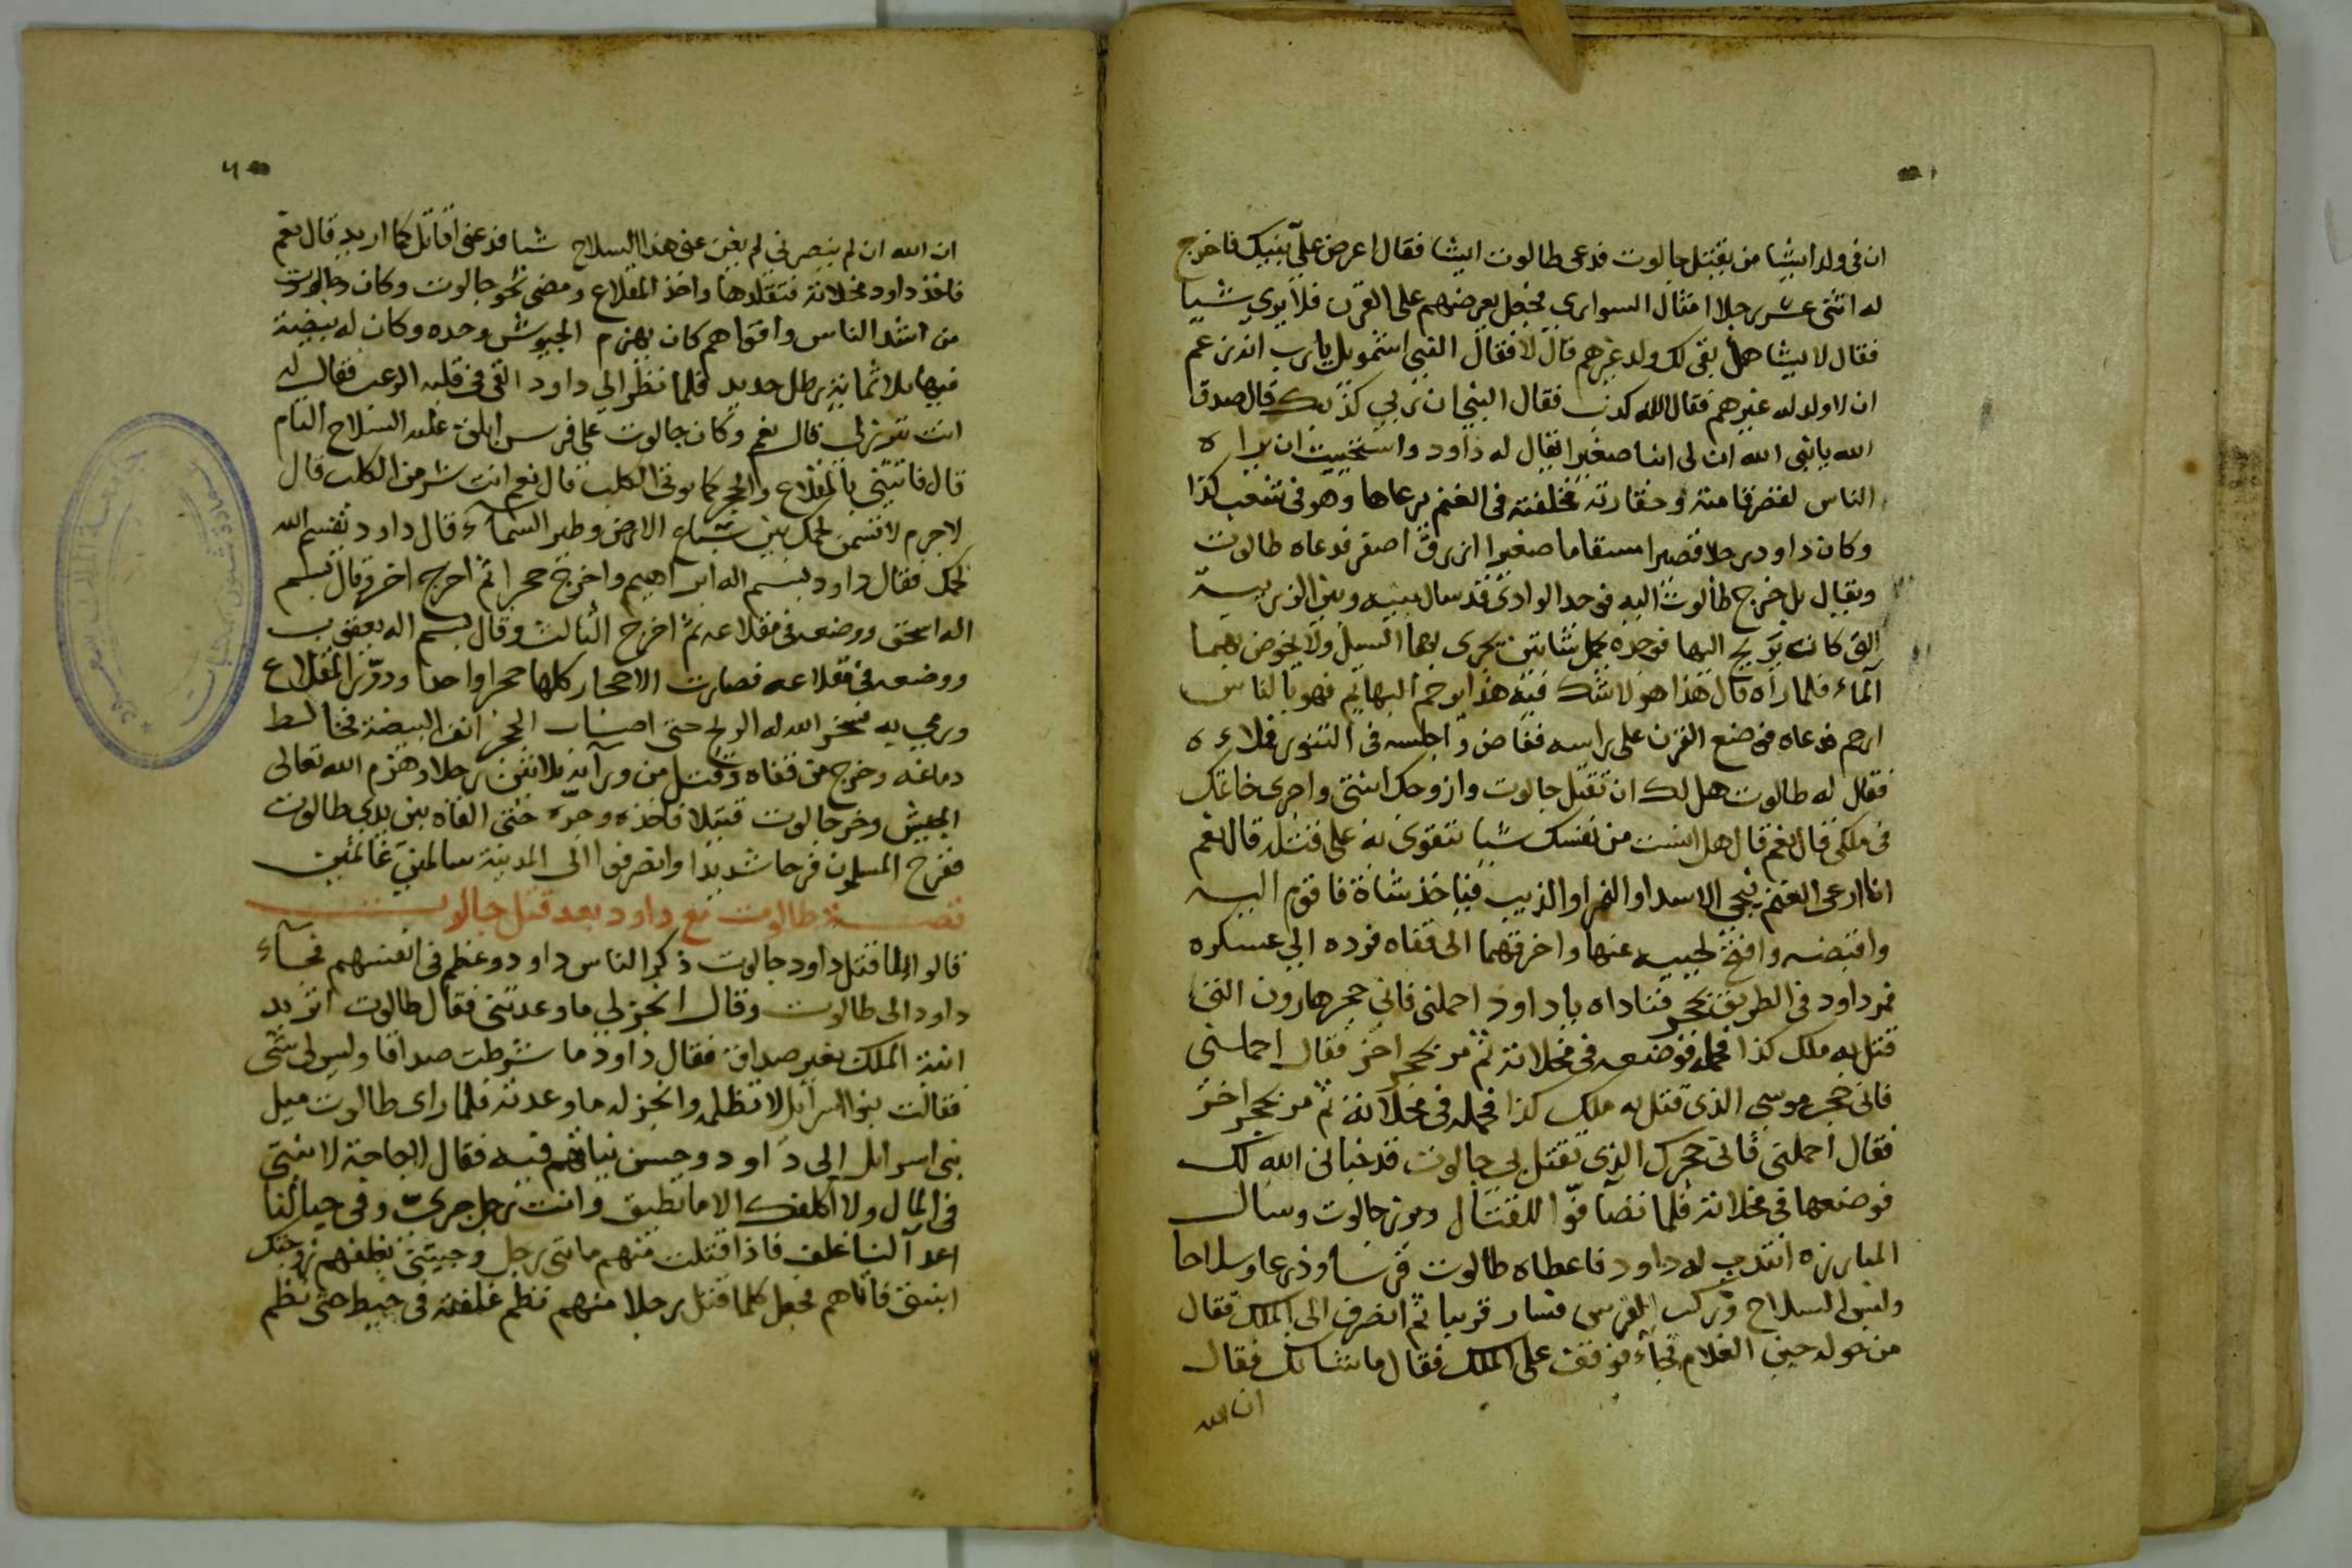 ان في ولد ايشا من يقتل جالوت فدعى طالوت ايشا فقال اعرض علي بنيك فاخرج
له اثنى عشر رجلا امثال السوارى فجعل يعرضهم على القرن فلا يرى شيا
فقال لايشا هل بقى لك ولد غيرهم قال لا فقال النبى اشمويل يا رب انه زعم
ان لا ولد له غيرهم فقال الله كذب فقال النبى ان ربى كذبك قال صدق
الله يا نبى الله ان لى ابنا صغيرا يقال له داود واستحييت ان يراه
الناس لقصر قامته وحقارته فخلفته فى الغنم يرعاها وهو فى شعب كذا
وكان داود رجلا قصيرا مسقاما صغيرا ازرق اصفر فدعاه طالوت
ويقال بل خرج طالوت اليه فوجد الوادى قد سال بينه وبين الزريبة
التى كان يريح اليها فوجده يحمل شاتين يجرى بهما السيل ولا يخوض بهما
الماء فلما راه قال هذا هو لا شك فيه هذا يرحم البهايم فهو بالناس
ارحم فدعاه فوضع القرن على راسه ففاض واجلسه فى التنور فملاءه
فقال له طالوت هل لك ان تقتل جالوت وازوجك ابنتى واجرى خاتمك
فى ملكى قال نعم قال هل انست من نفسك شيا تتقوى به على قتله قال نعم
انا ارعى الغنم فيجى الاسد او النمر او الذيب فياخذ شاة فاقوم اليه
واقبضه وافتح لحييه عنها واخرقهما الى قفاه فرده الى عسكره
فمر داود فى الطريق بحجر فناداه يا داود احملنى فانى حجر هارون الذى
قتل به ملك كذا فحمله فوضعه فى مخلاته ثم مر بحجر اخر فقال احملنى
فانى حجر موسى الذى قتل به ملك كذا فحمله فى مخلاته ثم مر بحجر اخر
فقال احملنى فانى حجرك الذى تقتل بى جالوت قد خبانى الله لك
فوضعها فى مخلاته فلما تصآفوا للقتال وبرز جالوت وسال
المبارزه انتدب له داود فاعطاه طالوت فرسا ودرعا وسلاحا
ولبس السلاح وركب الفرس فسار قريبا ثم انصرف الى الملك فقال
من حوله جبن الغلام فجآء فوقف على الملك فقال ما شانك فقال
ان الله
ان الله ان لم ينصرنى لم يغن عنى هذا السلاح شيا فدعنى اقاتل كما اريد قال نعم
فاخذ داود مخلاته فتقلدها واخذ المقلاع ومضى نحو جالوت وكان جالوت
من اشد الناس واقواهم كان يهزم الجيوش وحده وكان له بيضة
فيها ثلاثماية رطل حديد فلما نظر الى داود القى فى قلبه الرعب فقال له
انت تبرز لى قال نعم وكان جالوت على فرس ابلق عليه السلاح التام
قال فاتيتنى بالمقلاع والحجر كما يوتى الكلب قال نعم انت شر من الكلب قال
لا جرم لاقسمن لحمك بين سباع الارض وطير السمآء قال داود يقسم الله
لحمك فقال داود بسم اله ابراهيم واخرج حجرا ثم اخرج اخر وقال بسم
اله اسحق ووضعه فى مقلاعه ثم اخرج الثالث وقال بسم اله يعقوب
ووضعه فى مقلاعه فصارت الاحجار كلها حجرا واحدا ودوّر المقلاع
ورمى به فسخر الله له الريح حتى اصاب الحجر انف البيضة فخالط
دماغه وخرج من قفاه وقتل من ورآئه ثلاثين رجلا وهزم الله تعالى
الجيش وخر جالوت قتيلا فاخذه وجره حتى القاه بين يدى طالوت
ففرح المسلمون فرحا شديدا وانصرفوا الى المدينة سالمين غانمين
قصة طالوت مع داود بعد قتل جالوت
قالوا لما قتل داود جالوت ذكر الناس داود وعظم فى انفسهم فجآء
داود الى طالوت وقال انجز لى ما وعدتنى فقال طالوت اتريد
ابنة الملك بغير صداق فقال داود ما شرطت صداقا وليس لى شى
فقالت بنوا اسرايل لا تظلمه وانجز له ما وعدته فلما راى طالوت ميل
بنى اسرايل الى داود وحسن نياتهم فيه فقال لا حاجة لابنتى
فى المال ولا اكلفك الا ما تطيق وانت رجل جرى وفى جبالنا
اعدآ لنا غلف فاذا قتلت منهم مايتى رجل وجيتنى بغلفهم زوجتك
ابنتى فاتاهم فجعل كلما قتل رجلا منهم نظم غلفته فى خيط حتى نظم